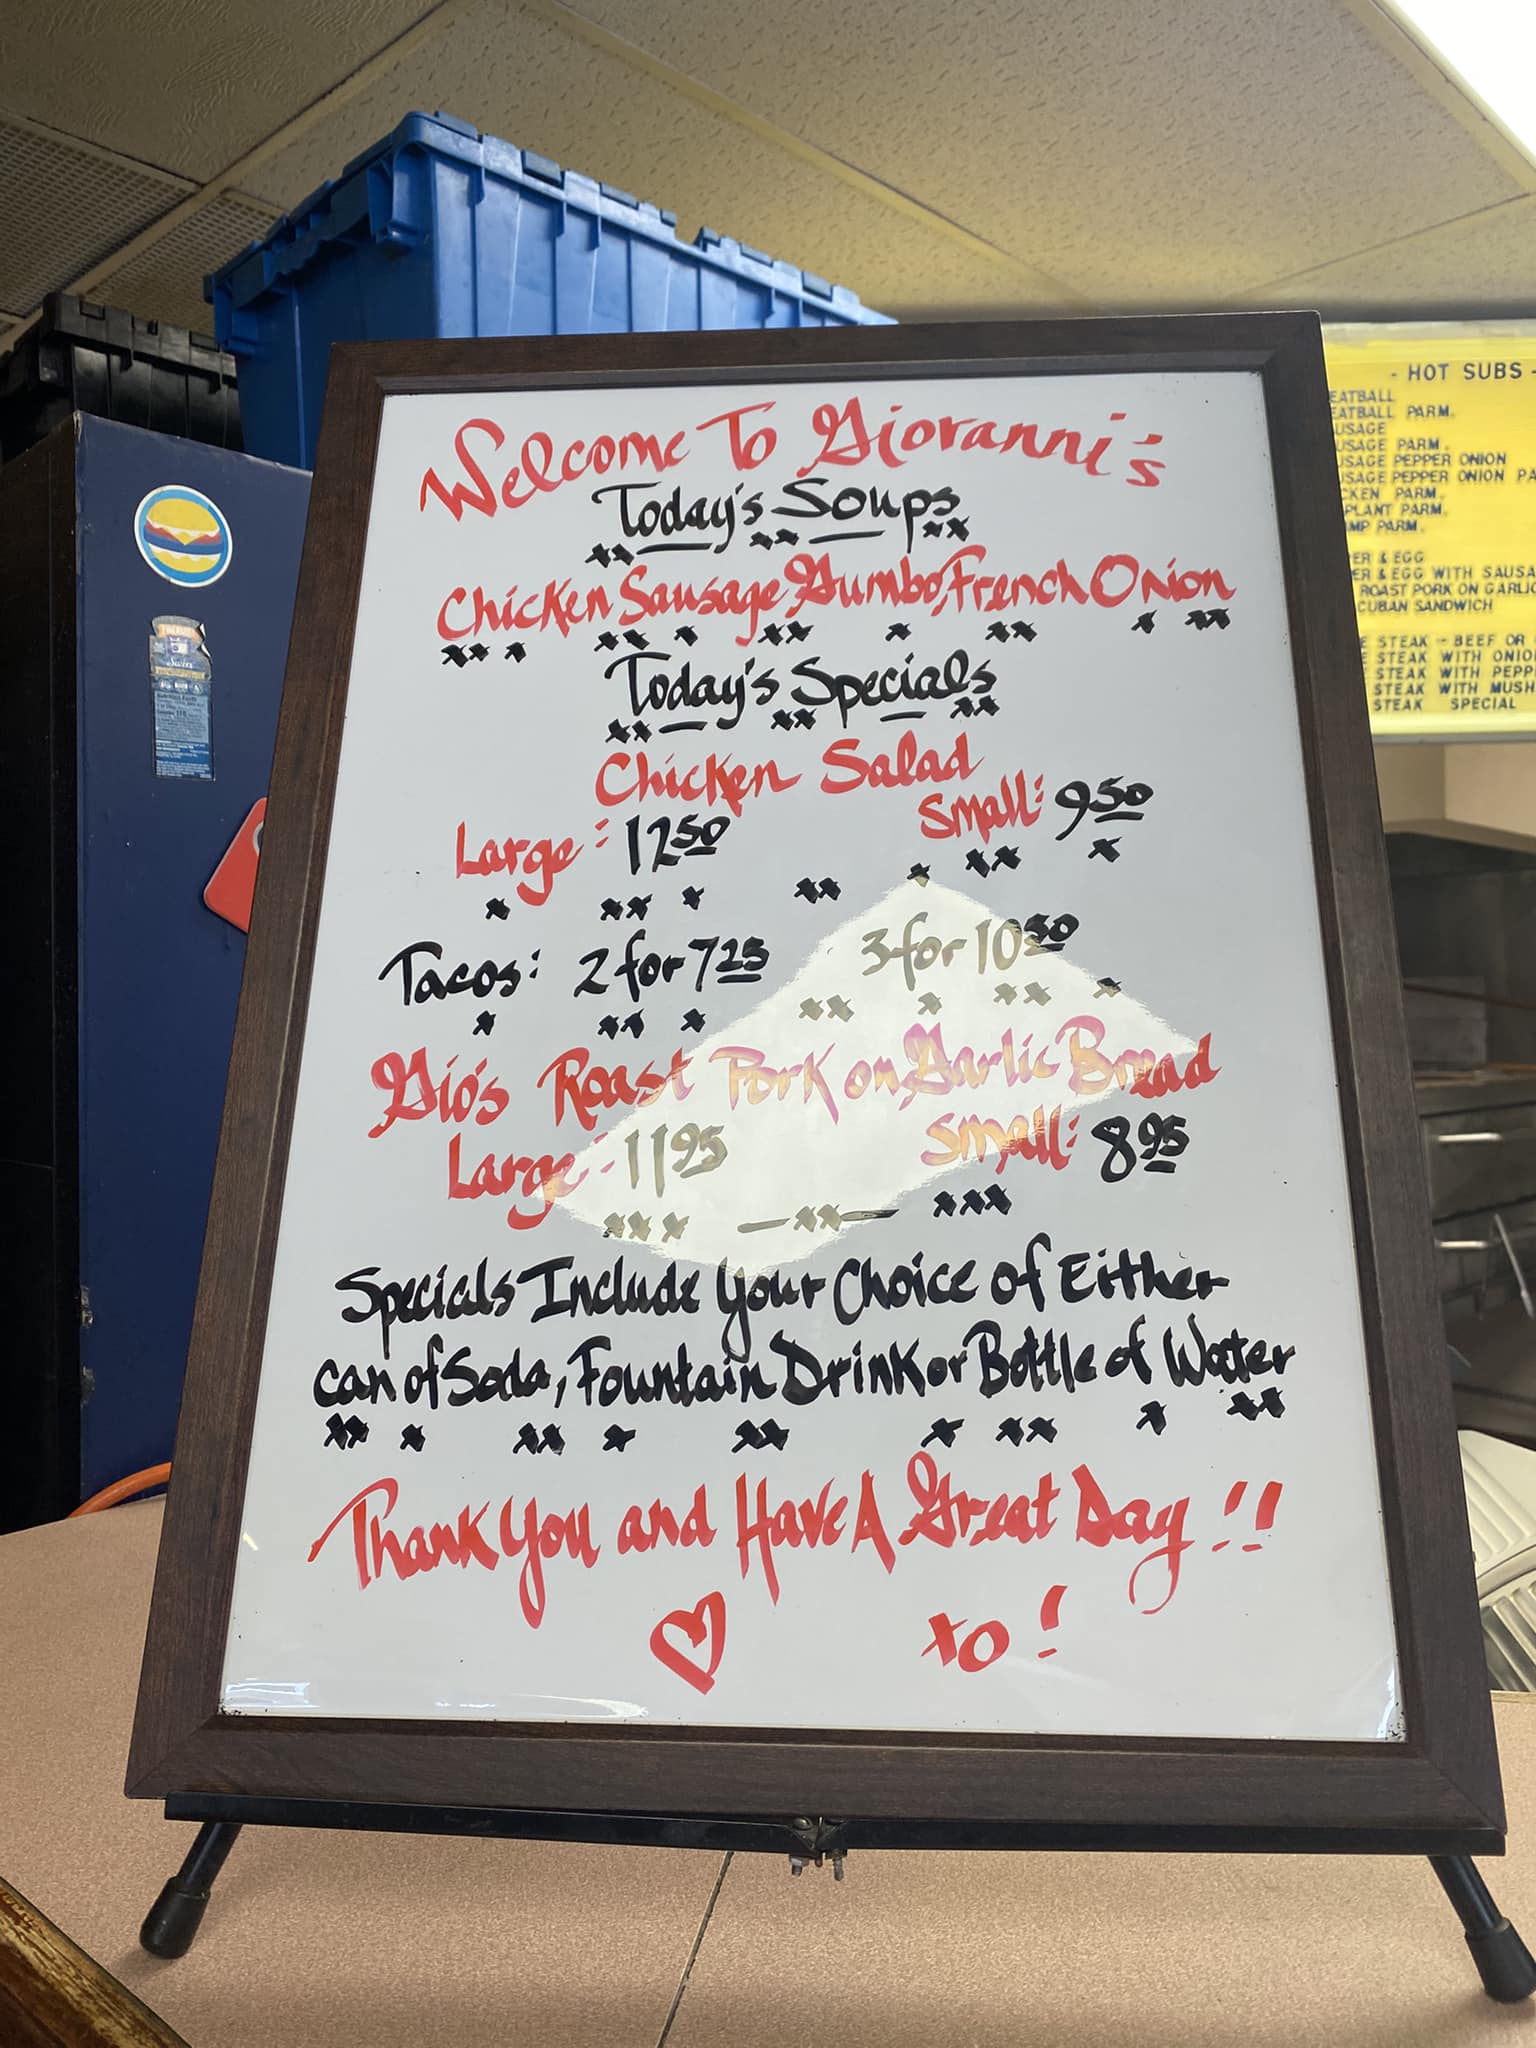 Welcome To Giovanni's
Today's Soups
Chicken Sausage Gumbo, French Onion
Today's Specials
Chicken Salad
Large: 12.50 Small: 9.50
Tacos: 2 for 7.25 3 for 10.50
Gio's Roast Pork on Garlic Bread
Large: 11.95 Small: 8.95
Specials Include Your Choice of Either
can of Soda, Fountain Drink or Bottle of Water
Thank You and Have A Great Day!!
xo!
- HOT SUBS -
PARM.
PARM.
PEPPER ONION
PEPPER ONION
PARM.
PARM.
PARM.
& EGG
& EGG WITH
ROAST PORK ON
CUBAN SANDWICH
STEAK - BEEF OR
STEAK WITH
STEAK WITH
STEAK WITH
STEAK SPECIAL